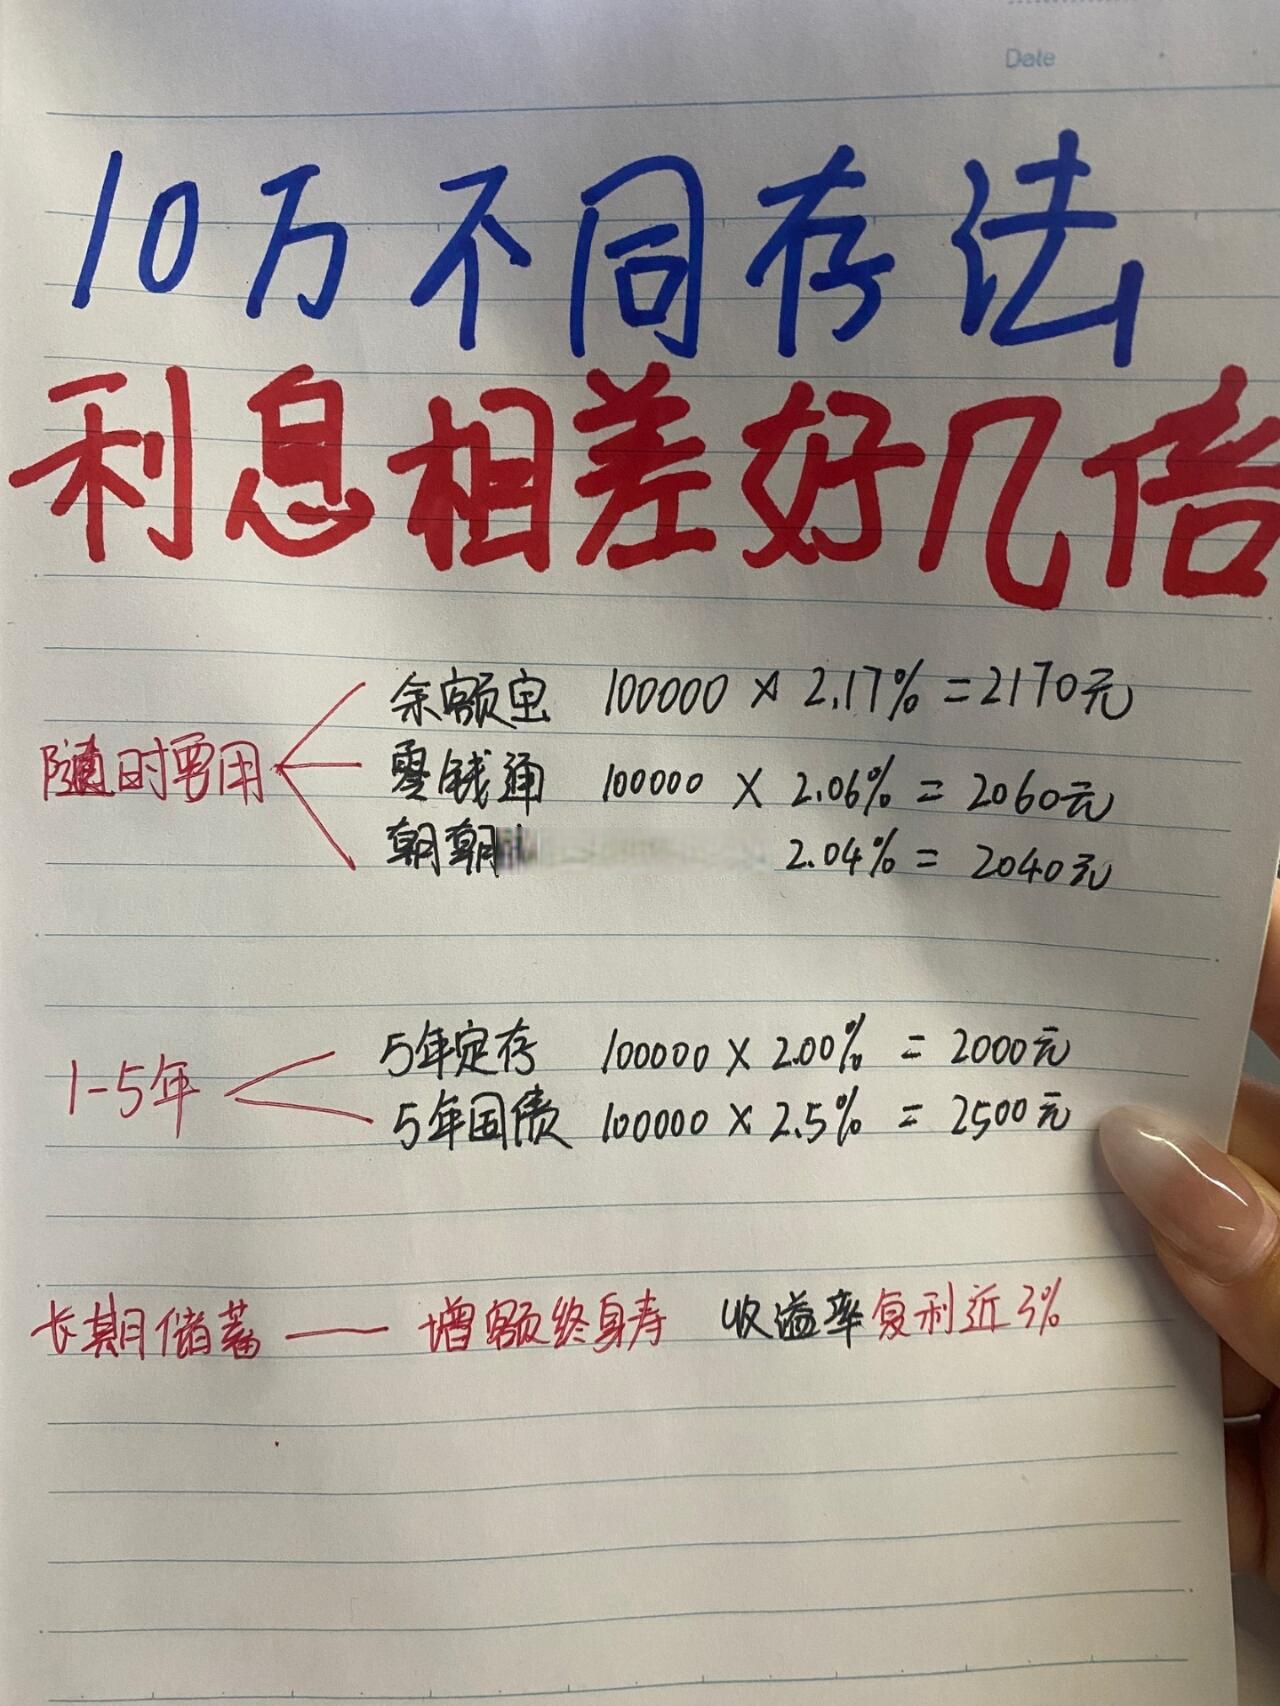 Date
10万不同存法
利息相差好几倍
随时要用
余额宝 100000 × 2.17% = 2170元
零钱通 100000 × 2.06% = 2060元
朝朝 2.04% = 2040元
1-5年
5年定存 100000 × 2.00% = 2000元
5年国债 100000 × 2.5% = 2500元
长期储蓄 —— 增额终身寿 收益率复利近3%